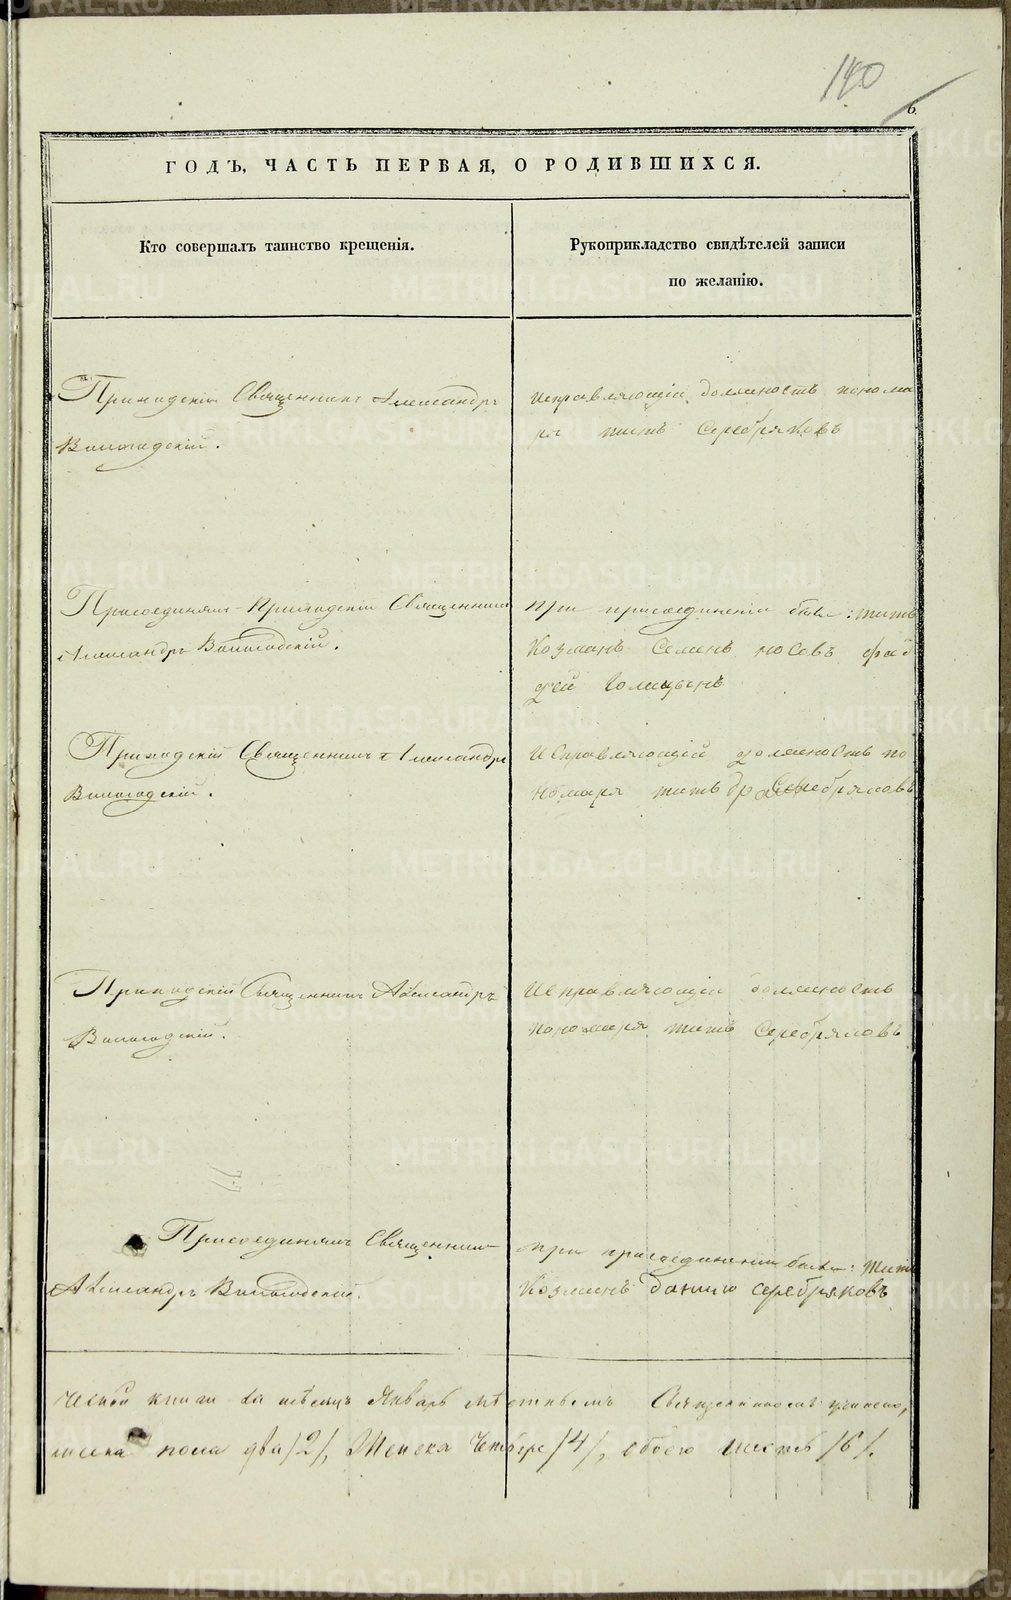 140
6.
ГОДЪ, ЧАСТЬ ПЕРВАЯ, О РОДИВШИХСЯ.
Кто совершалъ таинство крещенія.
Рукоприкладство свидѣтелей записи
по желанію.
Приходскій Священникъ Александръ
Вологодскій.
исправляющій должность понома
ря Титъ Серебряковъ
Присоединялъ Приходскій Священникъ
Александръ Вологодскій.
При присоединеніи были: Титъ
Козминъ Семенъ Носовъ фад
дей Голицынъ
Приходскій Священникъ Александръ
Вологодскій.
Исправляющій должность по
номаря Титъ Серебряковъ
Приходскій Священникъ Александръ
Вологодскій.
Исправляющій должность
пономаря Титъ Серебряковъ
Присоединялъ Священникъ
Александръ Вологодскій.
При присоединеніи были: Титъ
Козминъ Серебряковъ
книги за мѣсяцъ Январь Священникомъ учинено,
пола два /2/, Женска Четыре /4/, обоего шесть /6/.
METRIKI.GASO-URAL.RU